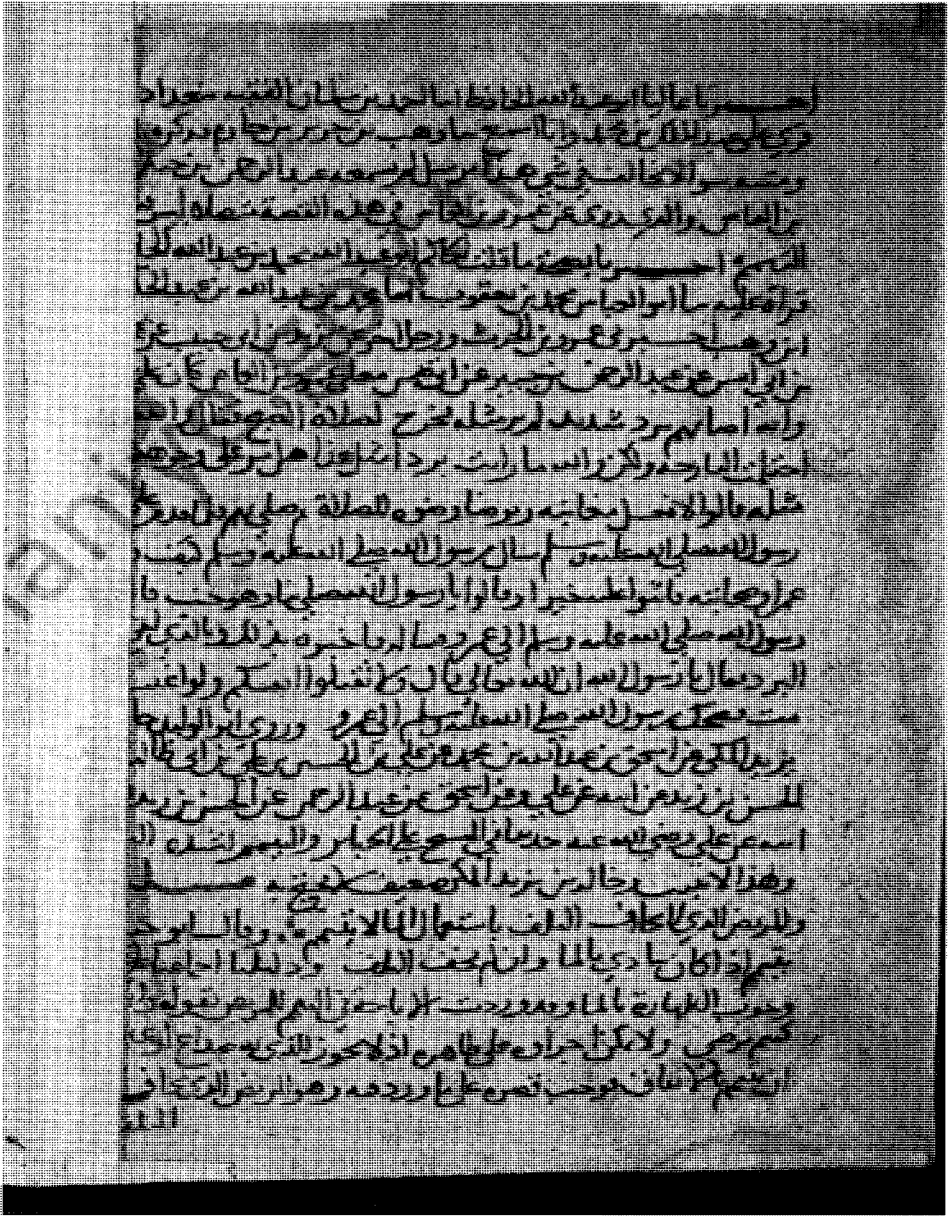 اخبرنا عاليا ابو عبد الله الحافظ انا احمد بن سلمان الفقيه ببغداد
قري على عبد الملك بن محمد وانا اسمع نا وهب بن جرير بن حازم فذكره
ومتنه سوا الا انه قال هذا مرسل لم يسمعه عبد الرحمن بن جبير
بن العاص والذي روى عن عمرو بن العاص في هذه القصة متصلا ليس فيه
التيمم اخبرنا بصحة ما قلت الحاكم ابو عبد الله محمد بن عبد الله الحا
قراة عليه نا ابو العباس محمد بن يعقوب انا محمد بن عبد الله بن عبد الحكم
ابن وهب اخبرني عمرو بن الحرث ورجل اخر عن يزيد بن ابي حبيب عن
بن ابي انس عن عبد الرحمن بن جبير عن ابي قيس مولى عمرو بن العاص كان على
وانه اصابهم برد شديد لم ير مثله فخرج لصلاة الصبح فقال والله
احتلمت البارحة ولكن والله ما رايت بردا مثل هذا هل مر على وجوهكم
مثله قالوا لا فغسل مغابنه وتوضا وضوه للصلاة وصلى بهم فلما قدم على
رسول الله صلى الله عليه وسلم سال رسول الله صلى الله عليه وسلم كيف و
عمرا وصحابته فاثنوا عليه خيرا وقالوا يا رسول الله صلى بنا وهو جنب فا
رسول الله صلى الله عليه وسلم الى عمرو فساله فاخبره بذلك وبالذي لقي
البرد فقال يا رسول الله ان الله تعالى قال ولا تقتلوا انفسكم ولو اغتسلت
مت فضحك رسول الله صلى الله عليه وسلم الى عمرو وروى ابو الوليد خا
يزيد المكي عن اسحق بن عبد الله بن محمد بن علي بن الحسين بن علي بن ابي طالب
الحسن بن زيد عن ابيه عن علي وعن اسحق عن عبد الرحمن عن الحسن بن زيد
ابيه عن علي رضي الله عنه حديثا في المسح على الجباير والتيمم لشدة البرد
وهذا لا يثبت وخالد بن يزيد المكي ضعيف لا يحتج به فصل
والمريض الذي لا يخاف التلف باستعمال الما لا يتيمم وقال ابو حنيفة
يتيمم اذا كان يتاذى بالما وان لم يخف التلف ودليلنا اجماعنا على
وجوب الطهارة بالما وقد وردت الاباحة في التيمم للمريض بقوله وان
كنتم مرضى ولا يمكن اجراوه على ظاهره اذ لا يجوز للذي به صداع او
ان يتيمم بالاتفاق فوجب قصره على ما ورد فيه وهو المريض الذي يخاف
التلف